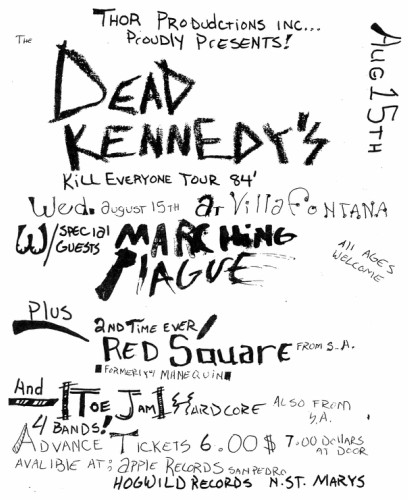 THOR PRODUDCTIONS INC...
PROUDLY PRESENTS!
AUG 15TH
The
DEAD
KENNEDY'S
KILL EVERYONE TOUR 84'
Wed. AUGUST 15TH AT Villa FONTANA
W/ SPECIAL GUESTS MARCHING PLAGUE
All AGES
WELCOME
Plus
2ND TIME EVER!
RED SQuARE FROM S.A.
FORMERLY MANEQUIN
And TOE JAM HARDCORE ALSO FROM S.A.
4 BANDS!
ADVANCE TICKETS 6.00$ 7.00 DOLLARS AT DOOR
AVALIBLE AT: APPLE RECORDS SAN PEDRO
HOGWILD RECORDS N. ST. MARYS